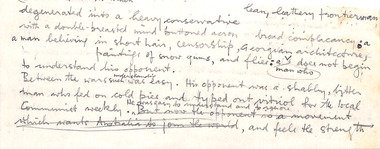 lean, leathery frontiersman
degenerated into a heavy conservative
with a double-breasted mind buttoned across broad complacency: a
a man believing in short hair, censorship, Georgian architecture,
paintings of snow gums, and flies: a V does not begin
man who
to understand his opponent.
Between the wars was easy. His opponent was a shabby, bitter
man who fed on cold pies and typed out vitriol for the local
He was easy to understand and to ignore
Communist weekly. But now the opponent is a movement
which wants Australia to join the world, and feels the strength